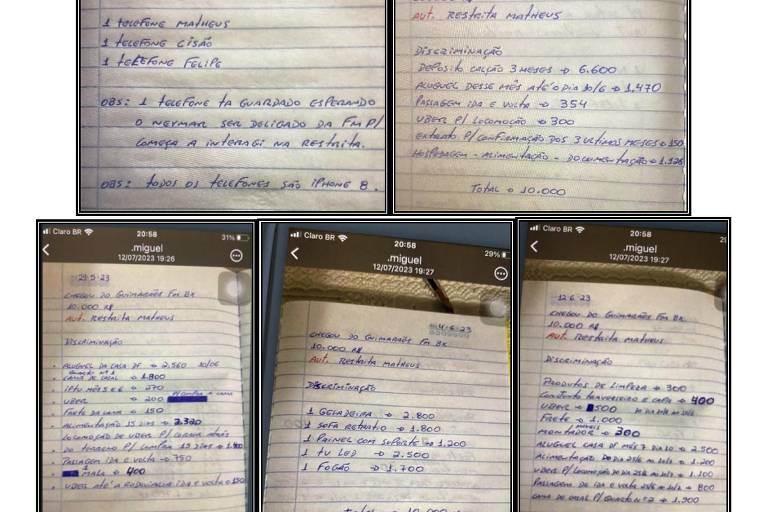 1 TELEFONE MATHEUS
1 TELEFONE CISÃO
1 TELEFONE FELIPE
OBS: 1 TELEFONE TA GUARDADO ESPERANDO
O NEYMAR SER DELIGADO DA FM P/
COMEÇA A INTERAGI NA RESTRITA.
OBS: TODOS OS TELEFONES SÃO IPHONE 8.
AUT. RESTRITA MATHEUS
DISCRIMINAÇÃO
DEPOSITO CALÇÃO 3 MESES → 6.600
ALUGUEL DESSE MÊS ATÉ O DIA 30/6 → 1.470
PASSAGEM IDA E VOLTA → 354
UBER P/ LOCOMOÇÃO → 300
EXTRATO P/ CONFIRMAÇÃO DOS 3 ULTIMOS MESES → 150
HOSPEDAGEM - ALIMENTAÇÃO - DOCUMENTAÇÃO → 1.126
TOTAL → 10.000
Claro BR 20:58 31%
.miguel
12/07/2023 19:26
29.5.23
CHEGOU DO GUIMARÃES FM BX
10.000 R$
AUT. RESTRITA MATHEUS
DISCRIMINAÇÃO
ALUGUEL DA CASA DF → 2.560 30/06
CAMA DE CASAL → 1.800
IPTU MÊS 5 E 6 → 270
UBER → 200 P/ COMPRA A CAMA
FRETE DA CAMA → 150
ALIMENTAÇÃO 15 DIAS → 2.320
LOCOMOÇÃO DE UBER P/ CORRER ATRÁS
DO TERRENO P/ COMPRA 15 DIAS →
PASSAGEM IDA E VOLTA → 750
1 MALA → 400
UBER ATÉ A RODOVIARIA IDA E VOLTA →
Claro BR 20:58 29%
.miguel
12/07/2023 19:27
4.6.23
CHEGOU DO GUIMARÃES FM BX
10.000 R$
AUT. RESTRITA MATHEUS
DISCRIMINAÇÃO
1 GELADEIRA → 2.800
1 SOFÁ RETRATIO → 1.800
1 PAINEL COM SUPORTE → 1.200
1 TV LED → 2.500
1 FOGÃO → 1.700
TOTAL → 10.000
Claro BR 20:58 2
.miguel
12/07/2023 19:27
12.6.23
CHEGOU DO GUIMARÃES FM BX
10.000 R$
AUT. RESTRITA MATHEUS
DISCRIMINAÇÃO
PRODUTOS DE LIMPEZA → 300
CONJUNTO TRAVESSEIRO E CAPA → 400
UBER → 500
FRETE → 1.000
MONTADOR → 300
ALUGUEL CASA DF MÊS 7 DIA 10 → 2.500
ALIMENTAÇÃO DO DIA → 1.200
UBER P/ LOCOMOÇÃO DO DIA → 1.100
PASSAGEM DE IDA E VOLTA → 800
CAMA DE CASAL P/ QUARTO Nº 2 → 1.900